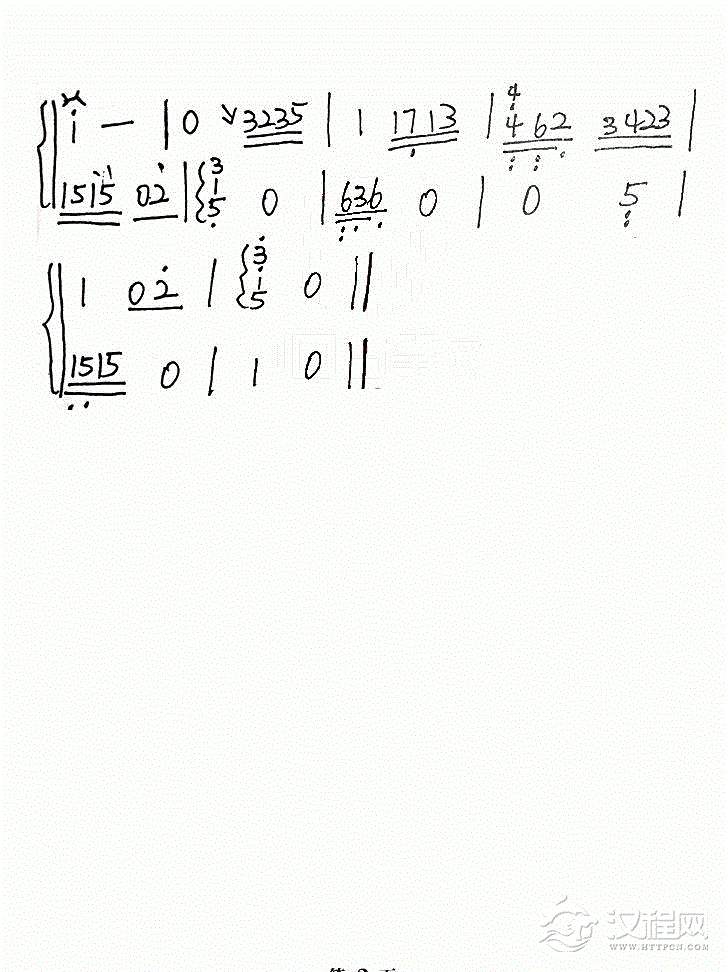 i — | 0 ∨ 3235 | 1 1713 | 4 462 3423 |
1515 02 | { 3 1 5 0 | 636 0 | 0 5 |
1 02 | { 3 i 5 0 ||
1515 0 | 1 0 ||
汉程网
WWW.HTTPCN.COM